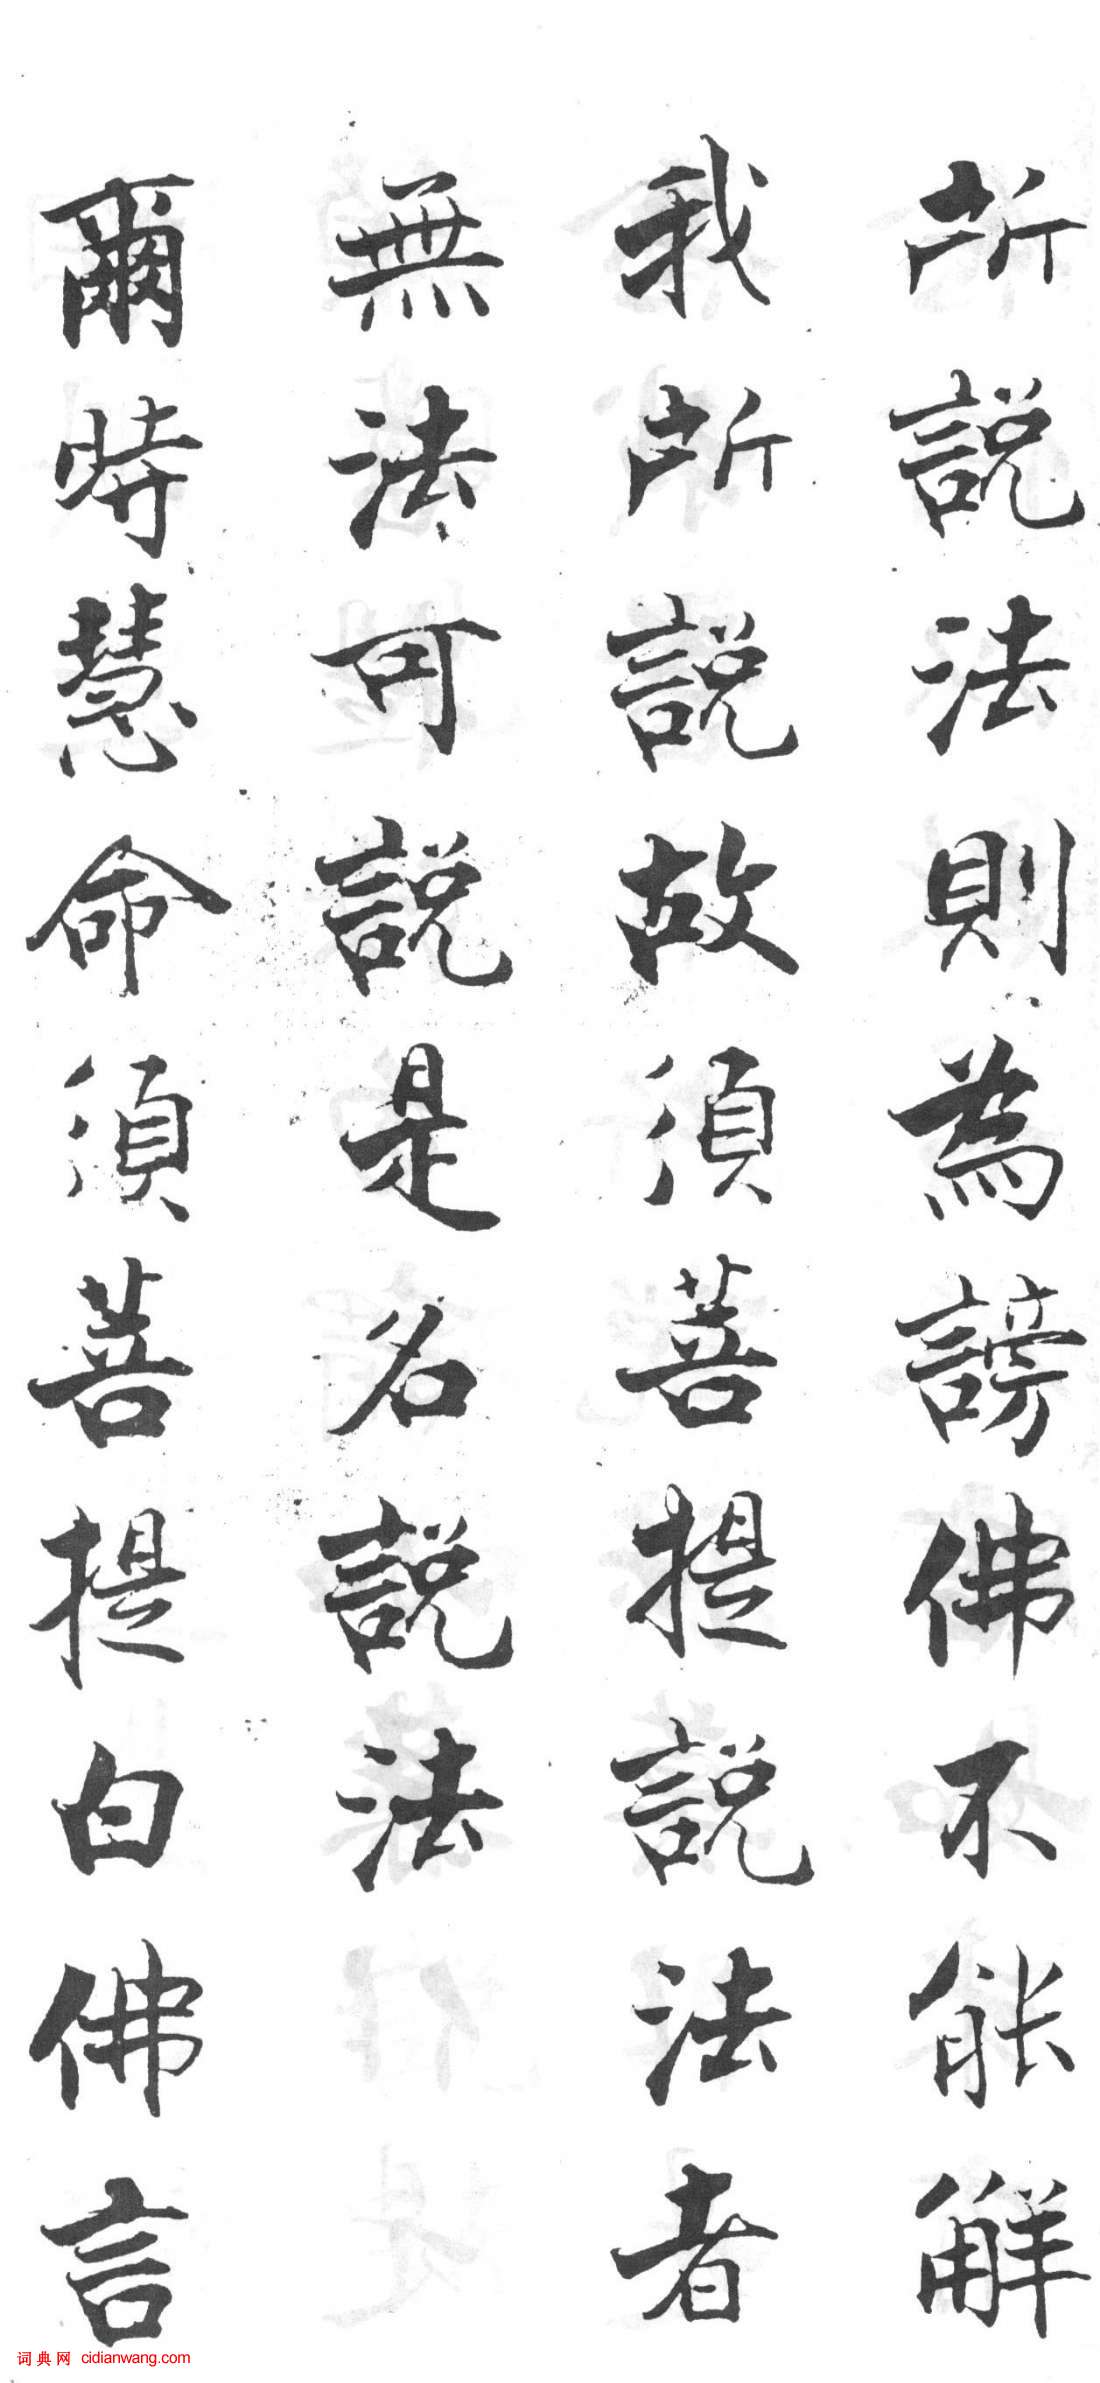 所說法則為謗佛不能解
我所說故須菩提說法者
無法可說是名說法
爾時慧命須菩提白佛言
词典网 cidianwang.com